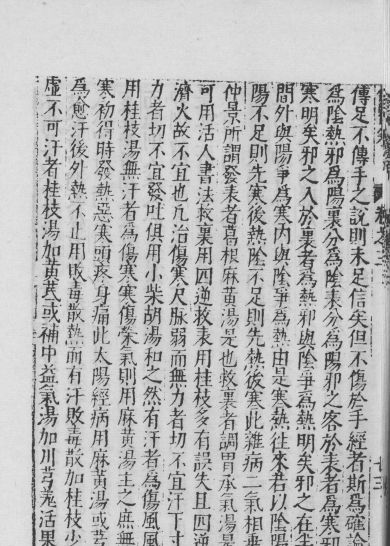 傳足不傳手之說則未足信矣但不傷於手經者斯爲確論
爲陰熱邪爲陽裏分爲陰表分爲陽邪之客於表者爲寒邪
寒明矣邪之入於裏者爲熱邪與陰爭爲熱明矣邪之在半
間外與陽爭爲寒內與陰爭爲熱由是寒熱往來若以陰陽
陽不足則先寒後熱陰不足則先熱後寒此雜病二氣相乘
仲景所謂發表者葛根麻黃湯是也救裏者調胃承氣湯是
可用活人書法救裏用四逆救表用桂枝多有誤失且四逆
濟火故不宜也凢治傷寒尺脉弱而無力者切不宜汗下寸
力者切不宜發吐俱用小柴胡湯和之然有汗者爲傷風風
用桂枝湯無汗者爲傷寒寒傷榮氣則用麻黃湯主之庶無
寒初得時發熱惡寒頭疼身痛此太陽經病用麻黃湯或芎
爲愈汗後外熱不止用敗毒散熱而有汗敗毒散加桂枝少
虛不可汗者桂枝湯加黃茋或補中益氣湯加川芎羗活果